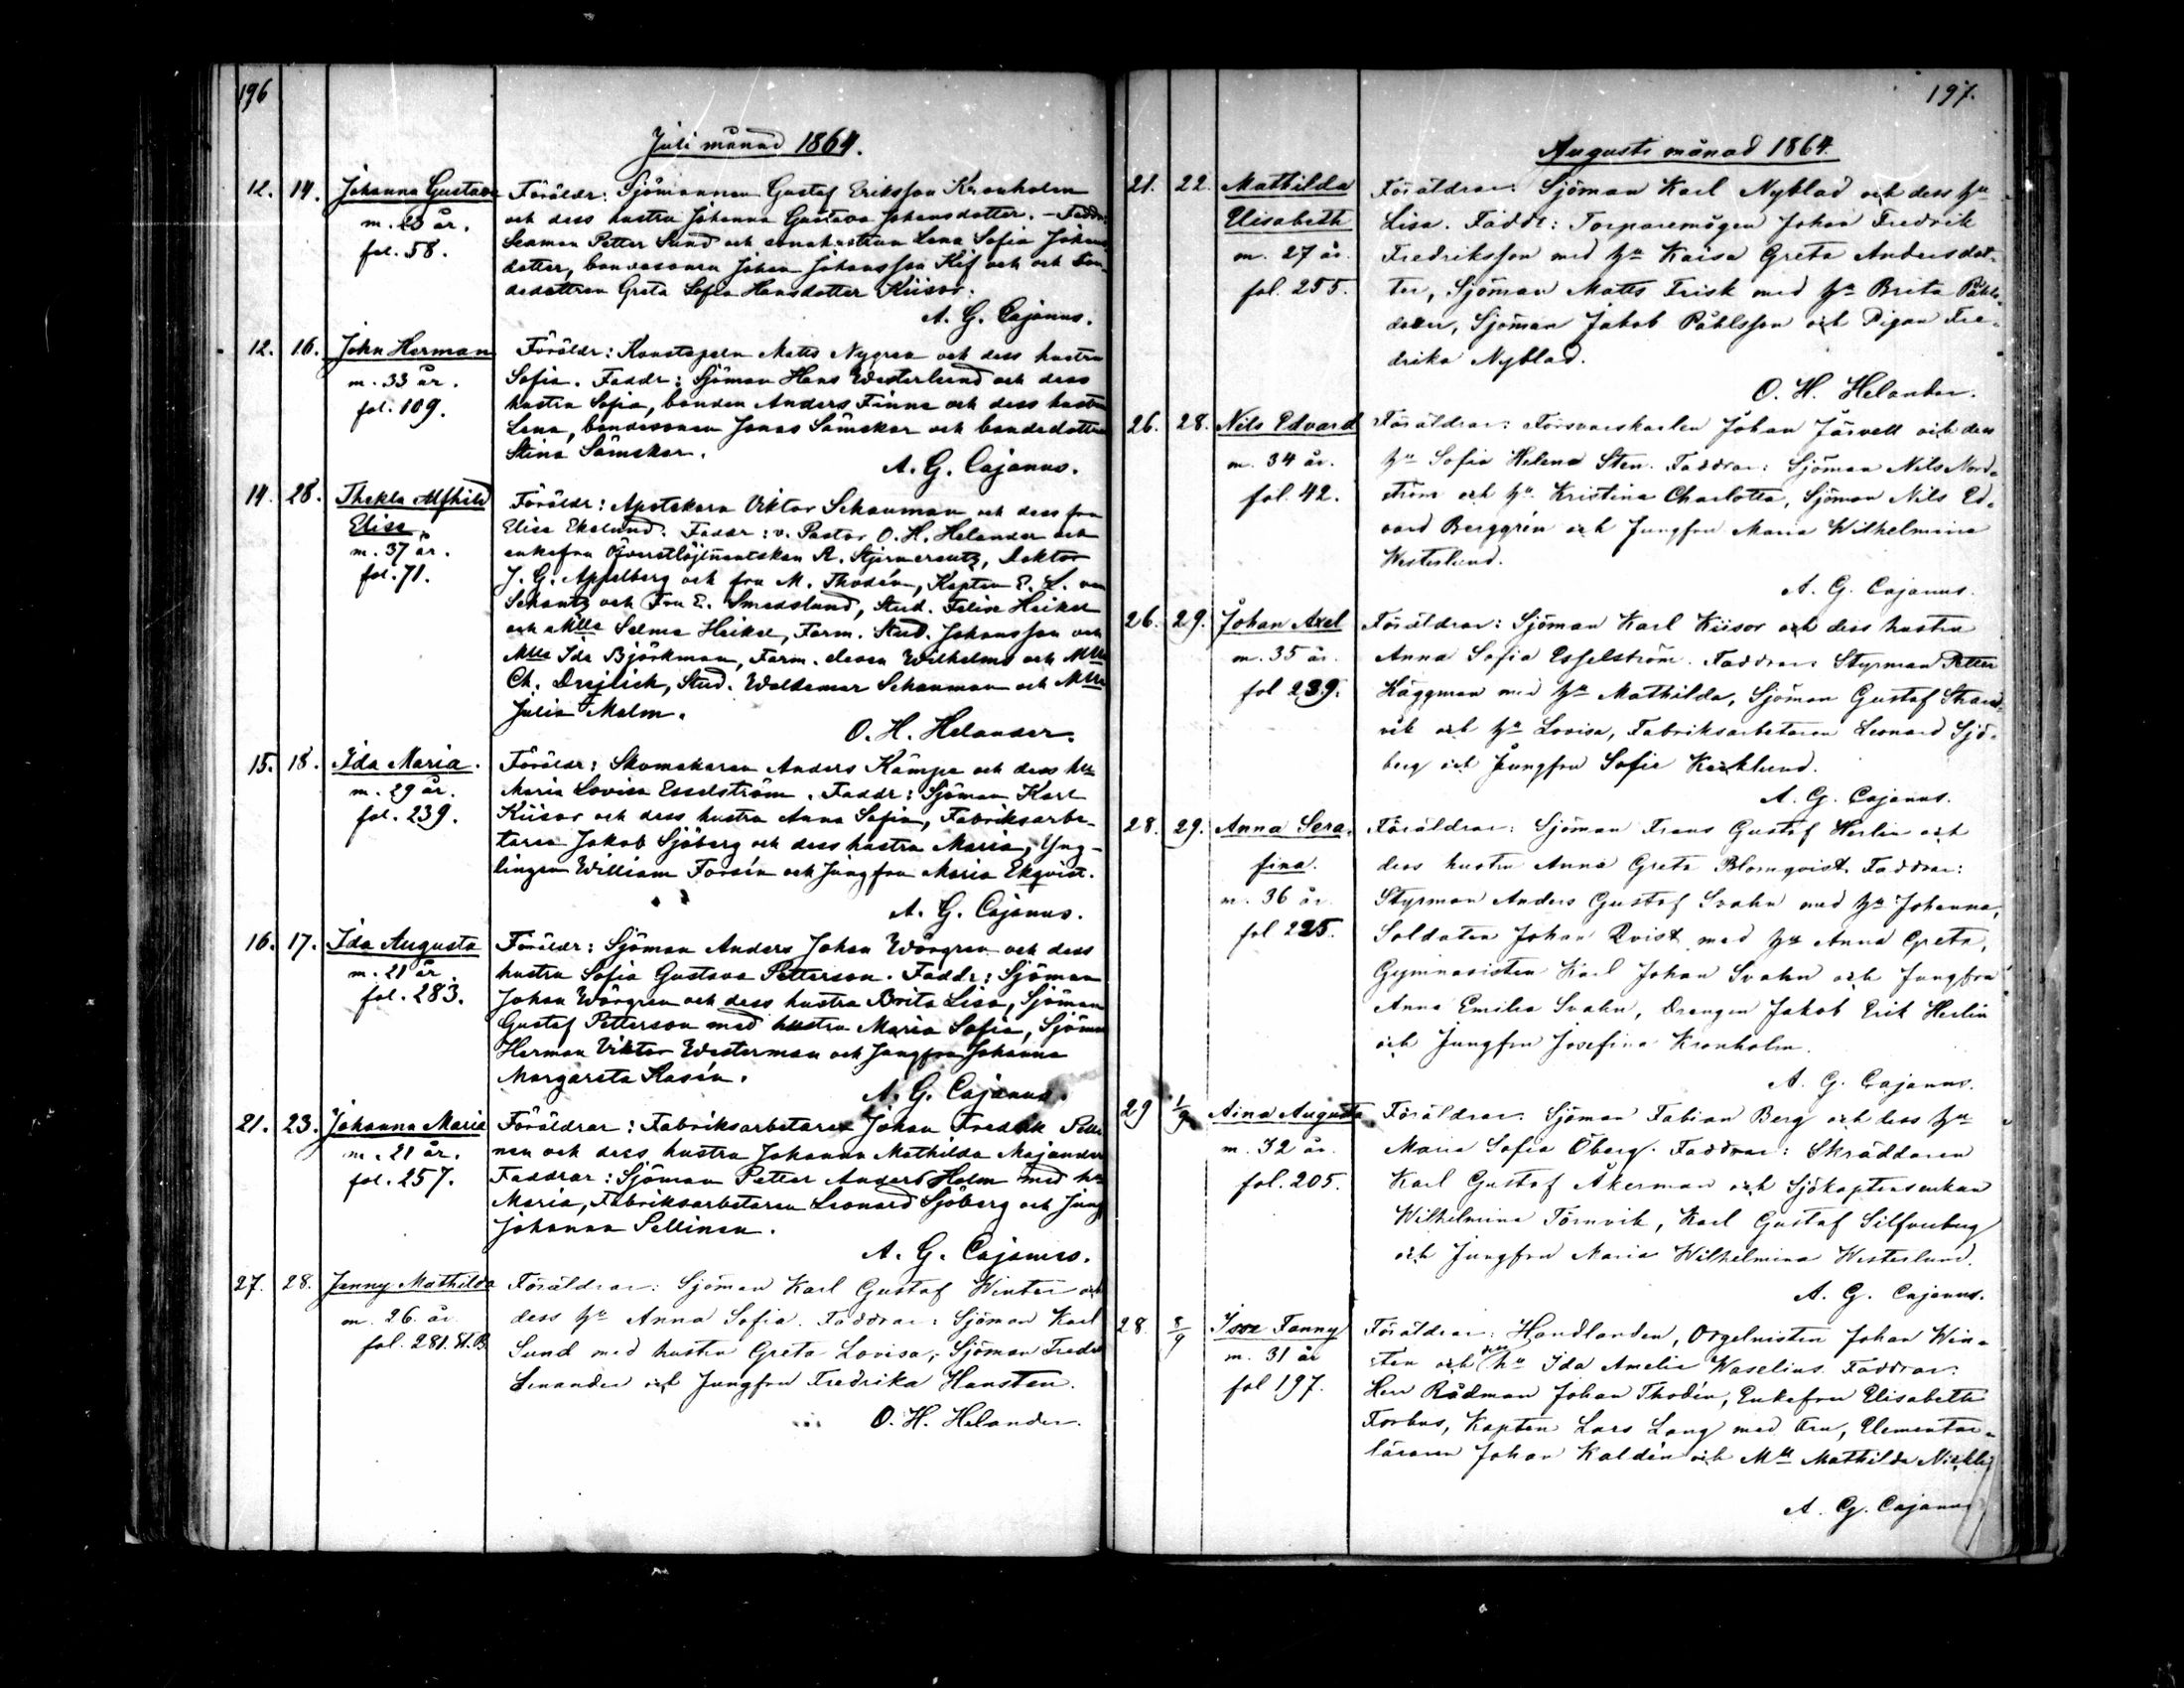 196
Juli månad 1864.
12. 14. Johanna Gustava Föräldr: Sjömannen Gustaf Eriksson Kronholm
m. 23 år. och dess hustru Johanna Gustava Johansdotter. - Faddr:
fol. 58. Seaman Petter Sund och enahustrun Lena Sofia Johans
dotter, bondesonen Johan Johansson Kif och och bon-
dedottren Greta Sofia Hansdotter Kiisor.
A. G. Cajanus.
12. 16. John Herman Föräldr: Konstapeln Matts Nygren och dess hustru
m. 33 år. Sofia. Faddr: Sjöman Hans Westerlund och dess
fol. 109. hustru Sofia, bonden Anders Finne och dess hustru
Lena, bondesonen Jonas Sämskar och bondedottren
Stina Sämskar.
A. G. Cajanus.
14. 28. Thekla Alfhild Föräldr: Apotekaren Viktor Schauman och dess fru
Elise Elise Ekelund. Faddr: v. Pastor O. H. Helander och
m. 37 år. enkefru Öfverstlöjtnantskan A. Stjerncreutz, Doktor
fol. 71. J. G. Appelberg och fru M. Thodén, Kapten E. L. von
Schantz och Fru E. Smedslund, Stud. Felix Heikel
och Mlle Selma Heikel, Farm. Stud. Johansson och
Mlle Ida Björkman, Farm. eleven Wilhelms och Mlle
Ch. Drejlick, Stud. Woldemar Schauman och Mlle
Julia Malm.
O. H. Helander.
15. 18. Ida Maria. Föräldr: Skomakaren Anders Kämpe och dess hu
m. 29 år. Maria Lovisa Esselström. Faddr: Sjöman Karl
fol. 239. Kiisor och dess hustru Anna Sofia, Fabriksarbe-
taren Jakob Sjöberg och dess hustru Maria, Yng-
lingen William Forsén och Jungfru Maria Ekqvist.
A. G. Cajanus.
16. 17. Ida Augusta Föräldr: Sjöman Anders Johan Wörgren och dess
m. 21 år. hustru Sofia Gustava Petterson. Faddr: Sjöman
fol. 283. Johan Wörgren och dess hustru Brita Lisa, Sjöman
Gustaf Petterson med hustru Maria Sofia, Sjöman
Herman Viktor Westerman och Jungfru Johanna
Margareta Rasén.
A. G. Cajanus.
21. 23. Johanna Maria Föräldrar: Fabriksarbetaren Johan Fredrik Pelli
m. 21 år. nen och dess hustru Johanna Mathilda Majander
fol. 257. Faddrar: Sjöman Petter Anders Holm med hu
Maria, Fabriksarbetaren Leonard Sjöberg och Jungf
Johanna Sellinen.
A. G. Cajanus.
27. 28. Jenny Mathilda Föräldrar: Sjöman Karl Gustaf Winter och
m. 26. år. dess hu Anna Sofia. Faddrar: Sjöman Karl
fol. 281. Sund med hustru Greta Lovisa, Sjöman Fredr
Lenander och Jungfru Fredrika Hansten.
O. H. Helander.
197.
Augusti månad 1864.
21. 22. Mathilda Föräldrar: Sjöman Karl Nyblad och dess hu
Elisabeth Lisa. Faddr: Torparemågen Johan Fredrik
m. 27 år. Fredriksson med hu Kaisa Greta Andersdot-
fol. 255. ter, Sjöman Matts Frisk med hu Brita Påhls-
dotter, Sjöman Jakob Påhlsson och Pigan Fre-
drika Nyblad.
O. H. Helander.
26. 28. Nils Edvard Föräldrar: Försvarskarlen Johan Järvell och dess
m. 34 år. hu Sofia Helena Sten. Faddrar: Sjöman Nils Nord-
fol. 42. ström och hu Kristina Charlotta, Sjöman Nils Ed-
vard Berggrén och Jungfru Maria Wilhelmina
Westerlund.
A. G. Cajanus.
26. 29. Johan Axel Föräldrar: Sjöman Karl Kiisor och dess hustru
m. 35 år. Anna Sofia Esselström. Faddrar: Styrman Petter
fol 239. Häggman med hu Mathilda, Sjöman Gustaf Strand-
vik och hu Lovisa, Fabriksarbetaren Leonard Sjö-
berg och Jungfru Sofia Kecklund.
A. G. Cajanus.
28. 29. Anna Sera- Föräldrar: Sjöman Frans Gustaf Herlin och
fina. dess hustru Anna Greta Blomqvist. Faddrar:
m. 36 år. Styrman Anders Gustaf Svahn med hu Johanna,
fol 225. Soldaten Johan Qvist med hu Anna Greta,
Gymnasisten Karl Johan Svahn och Jungfru
Anna Emilia Svahn, Drengen Jakob Erik Herlin
och Jungfru Josefina Kronholm.
A. G. Cajanus.
29 1/9 Aina Augusta Föräldrar: Sjöman Fabian Berg och dess hu
m. 32 år. Maria Sofia Öberg. Faddrar: Skräddaren
fol. 205. Karl Gustaf Åkerman och Sjökaptensenkan
Wilhelmina Törnvik, Karl Gustaf Silfverberg
och Jungfru Maria Wilhelmina Westerlund.
A. G. Cajanus.
28. 8/9 Fanny Föräldrar: Handlanden, Orgelnisten Johan Win-
m. 31 år ten och hu Ida Amelie Waselius. Faddrar:
fol 197. Herr Rådman Johan Thodén, Enkefru Elisabeth
Forbus, Kapten Lars Lang med Fru, Elementar-
läraren Johan Kaldén och Mll Mathilda
A. G. Cajanus